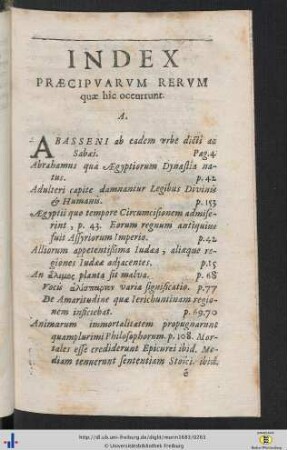 INDEX
PRÆCIPVARVM RERVM
quæ hîc occurrunt.
A.
ABASSENI ab eadem vrbe dicti ac
Sabæi. Pag. 4.
Abrahamus qua Ægyptiorum Dynastia na-
tus. p. 42
Adulteri capite damnantur Legibus Divinis
& Humanis. p. 153
Ægyptii quo tempore Circumcisionem admise-
rint, p. 43. Eorum regnum antiquius
fuit Assyriorum Imperio. p. 42
Alliorum appetentissima Iudæa, aliæque re-
giones Iudææ adjacentes. p. 15
An ἅλιμος planta sit malva. p. 68
Vocis varia significatio. p. 77
De Amaritudine qua Ierichuntinam regio-
nem inficiebat. p. 69. 70
Animarum immortalitatem propugnarunt
quamplurimi Philosophorum. p. 108. Mor-
tales esse crediderunt Epicurei ibid. Me-
diam tenuerunt sententiam Stoici. ibid.
é
http://dl.ub.uni-freiburg.de/diglit/morin1683/0263
© Universitätsbibliothek Freiburg